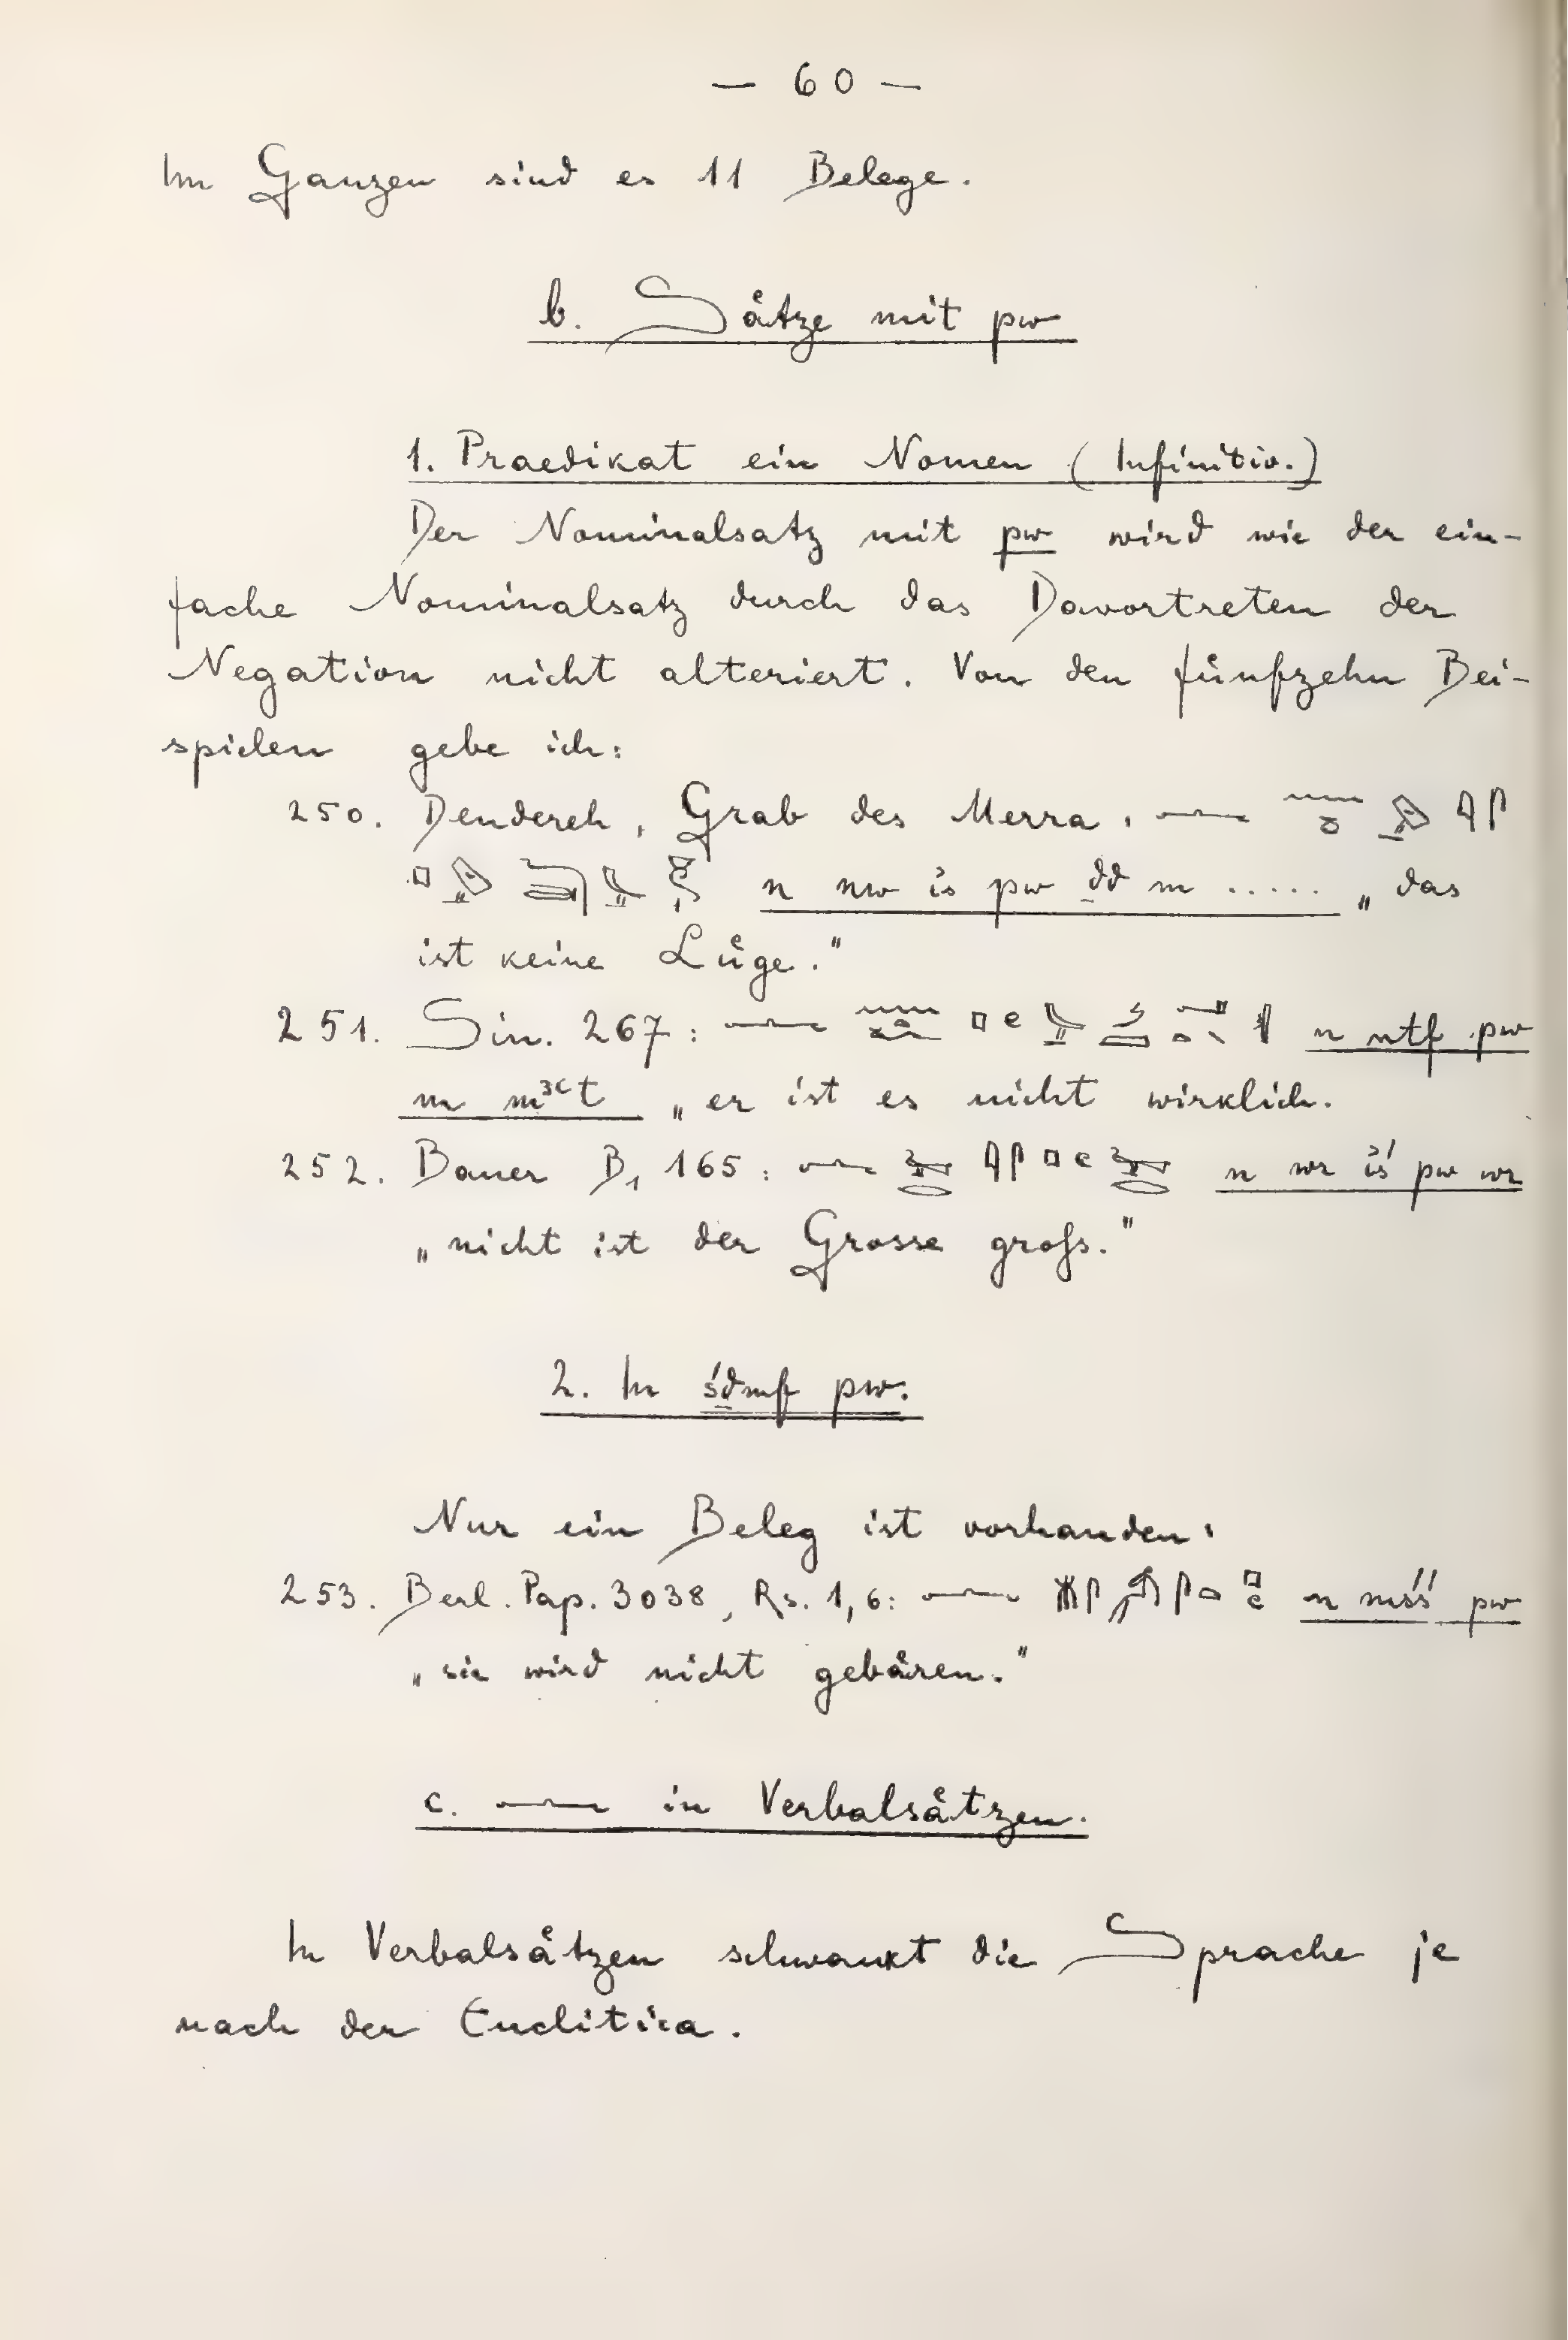 — 60 —
Im Ganzen sind es 11 Belege.
b. Sätze mit pw
1. Praedikat ein Nomen (Infinitiv.)
Der Nominalsatz mit pw wird wie der ein-
fache Nominalsatz durch das Davortreten der
Negation nicht alteriert. Von den fünfzehn Bei-
spielen gebe ich:
250. Dendereh, Grab des Merra:
n nw iś pw ḏd m ..... „das
ist keine Lüge."
251. Sin. 267: n ntf pw
m mꜣꜥt „er ist es nicht wirklich.
252. Bauer B, 165: n wr iś pw wr
„nicht ist der Grosse groſs."
2. In śḏmf pw.
Nur ein Beleg ist vorhanden:
253. Berl. Pap. 3038, Rs. 1,6: n mśś pw
„sie wird nicht gebären."
c. in Verbalsätzen.
In Verbalsätzen schwankt die Sprache je
nach der Enclitica.